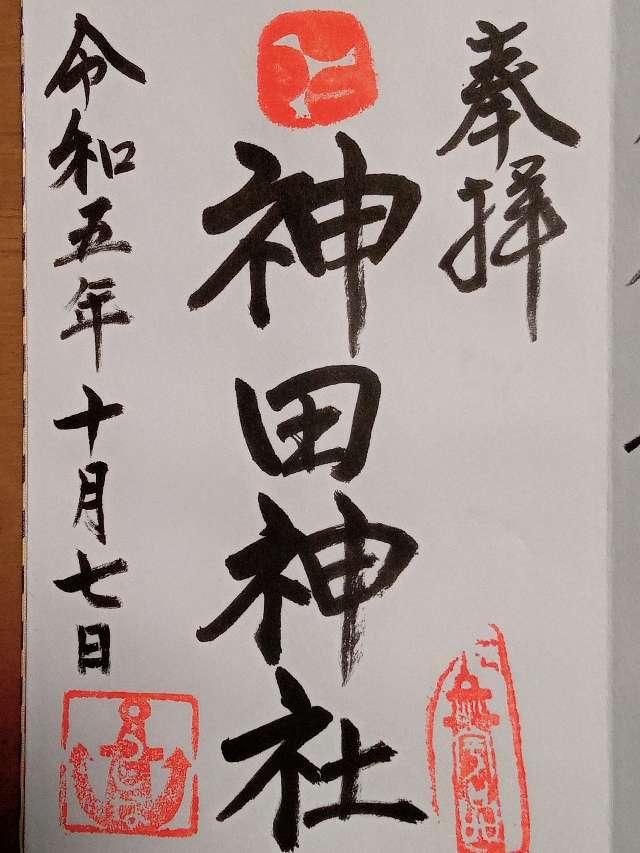 奉拝
神田神社
令和五年十月七日